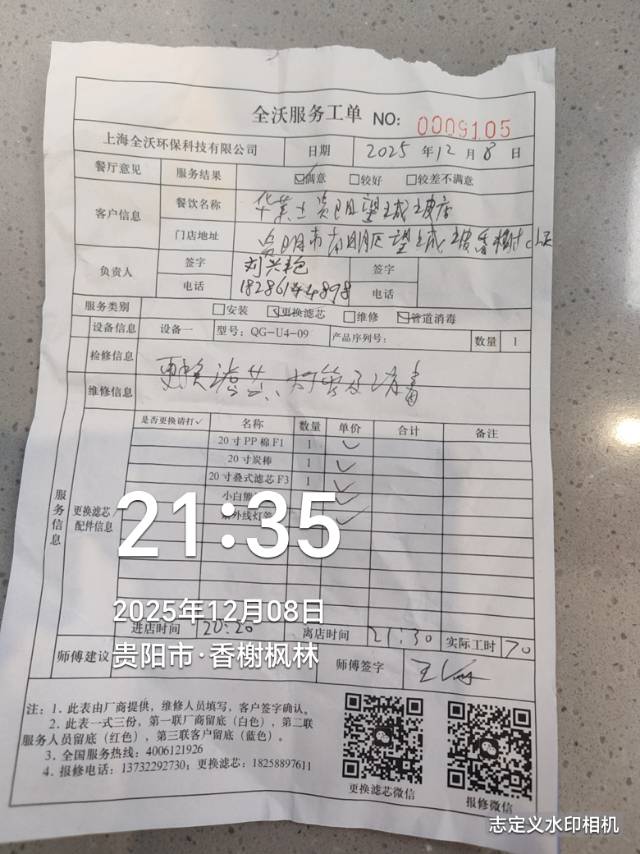 全沃服务工单 NO: 0009105
上海全沃环保科技有限公司 日期 2025 年 12 月 8 日
餐厅意见 服务结果 ☑满意 □较好 □较差不满意
客户信息 餐饮名称 华莱士贵阳望城坡店
门店地址 贵阳市南明区望城坡香榭
负责人 签字 签字
电话 18286144898 电话
服务类别 □安装 ☑更换滤芯 □维修 ☑管道消毒
设备信息 设备一 型号: QG-U4-09 产品序列号: 数量 1
检修信息
维修信息 更换滤芯、灯管及消毒
服务信息 更换滤芯配件信息
是否更换请打✓ 名称 数量 单价 合计 备注
20寸PP棉F1 1 ✓
20寸炭棒 1 ✓
20寸叠式滤芯F3 1 ✓
小白 ✓
外线灯管 ✓
21:35
2025年12月08日
贵阳市·香榭枫林
进店时间 20:20 离店时间 21:30 实际工时 70
师傅建议 师傅签字
注: 1. 此表由厂商提供, 维修人员填写, 客户签字确认。
2. 此表一式三份, 第一联厂商留底 (白色), 第二联
服务人员留底 (红色), 第三联客户留底 (蓝色)。
3. 全国服务热线: 4006121926
4. 报修电话: 13732292730; 更换滤芯: 18258897611
更换滤芯微信 报修微信
志定义水印相机